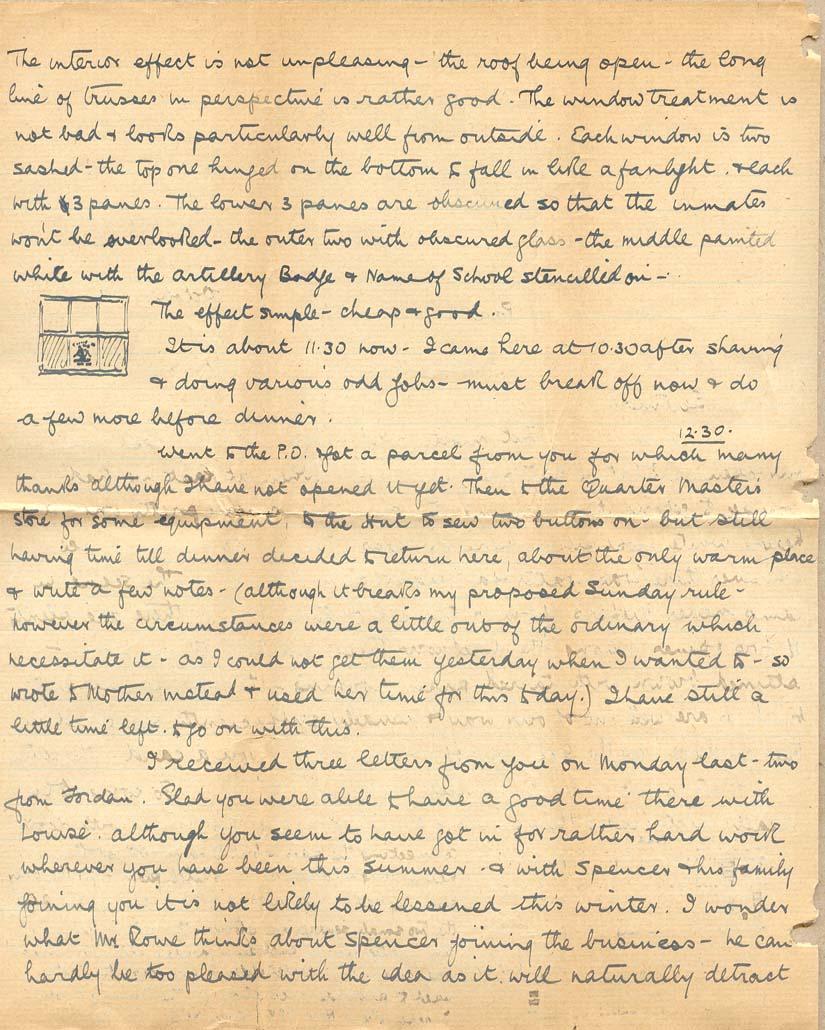 The interior effect is not unpleasing - the roof being open - the long
line of trusses in perspective is rather good. The window treatment is
not bad & looks particularly well from outside. Each window is two
sashed - the top one hinged on the bottom to fall in like a fanlight. & each
with 3 panes. The lower 3 panes are obscured so that the inmates
won't be overlooked - the outer two with obscured glass - the middle painted
white with the artillery Badge & Name of School stencilled on -
The effect simple - cheap & good.
It is about 11.30 now - I came here at 10.30 after shaving
& doing various odd jobs - must break off now & do
a few more before dinner.
12.30.
Went to the P.O. & got a parcel from you for which many
thanks although I have not opened it yet. Then to the Quarter Master's
store for some equipment, to the Hut to sew two buttons on - but still
having time till dinner decided to return here, about the only warm place
& write a few notes - (although it breaks my proposed Sunday rule -
however the circumstances were a little out of the ordinary which
necessitate it - as I could not get them yesterday when I wanted to - so
wrote to Mother instead & used her time for this today.) I have still a
little time left. to go on with this.
I received three letters from you on Monday last - two
from Jordan. Glad you were able to have a good time there with
Louise. although you seem to have got in for rather hard work
wherever you have been this summer. & with Spencer & his family
joining you it is not likely to be lessened this winter. I wonder
what Mr. Rowe thinks about Spencer joining the business - he can
hardly be too pleased with the idea as it will naturally detract